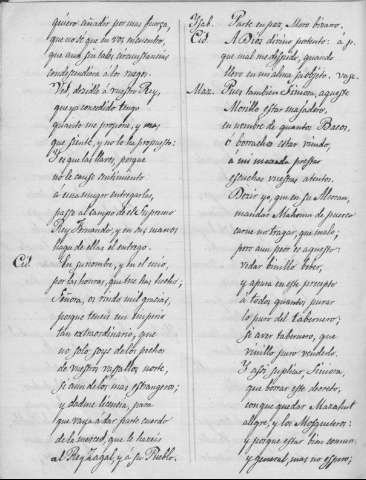 quiero añadir por mas fuerza,
que no se que en vos encuentro,
que aun sin tales circunstancias
condescendiera à los ruegos.
Id, decidle à vuestro Rey,
que ya concedido tengo
quanto me propone, y mas
que siente, y no lo ha propuesto:
Y es que las llaves, porque
no le cause sentimiento
à essa muger entregarlas,
passo al campo de el supremo
Rey Fernando, y en sus manos
haga de ellas el entrego.
Cid. En su nombre, y en el mio,
por las honras, que me has hechas;
Señora, os rindo mil gracias,
porque teneis un imperio
tan extraordinario, que
no solo soys de los pechos
de vuestros vasallos norte,
si aun de los mas estrangeros;
y dadme licencia, para
que vaya à dar parte cuerdo
de la merced, que le haveis
al Rey Zagal, y à su Pueblo.
Ysab. Parte en paz, Moro bizarro.
Cid. A Dios divino portento: à p.
que mal me despido, quando
llevo en mi alma sugeto. vase.
Maz. Pues tambien Señora, aqueste
Morillo estar majadero,
en nombre de quantos Bacos,
ò borrachos estar viendo,
à mi mirada prestar
escuchar vuestras atentos.
Dezir yo, que en su Alcoran,
mandar Mahoma de puerco
carne no tragar, que malo;
pero aun peor es aquesto:
vedar vinillo beber,
y apara en esse precepto
à todos quantos, parar
lo puro del tabernero;
si aver tabernero, que
vinillo puro venderlo.
Y assi suplicar, Señora,
que borrar este decreto,
con que quedar Mazafut
alegre, y los Mosqueteros:
y porque estar bien comun,
y general, mas no espero;